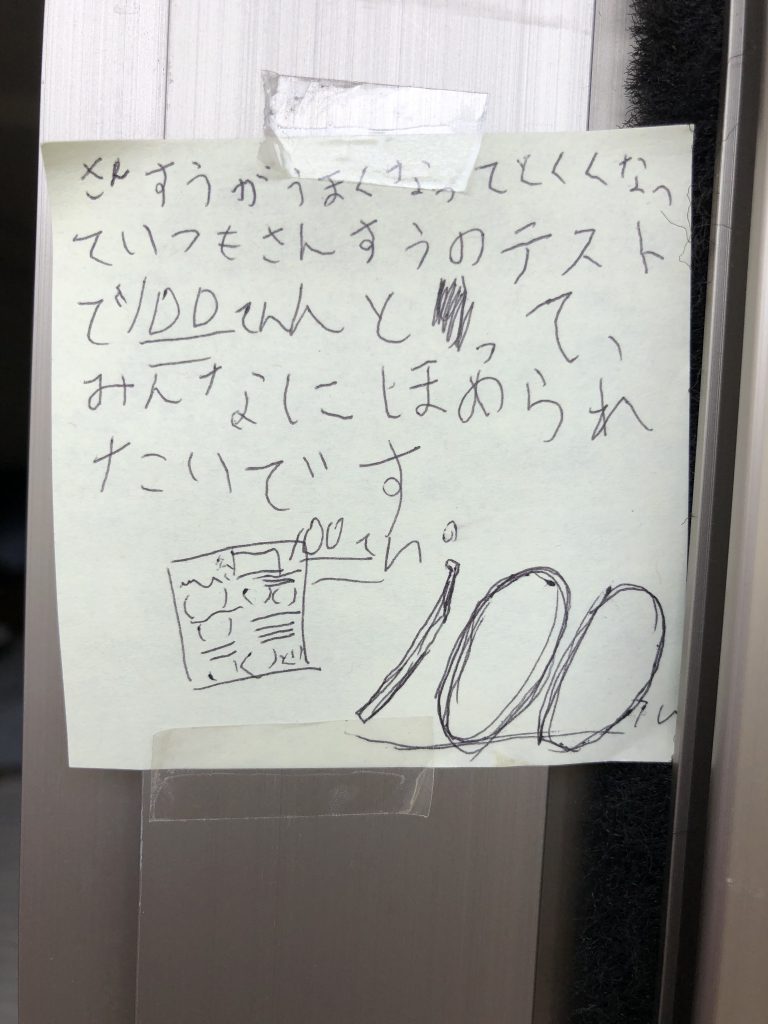 さんすうがうまくなってとくくなっ
ていつもさんすうのテスト
で100てんとって、
みんなにほめられ
たいです
100てん。
100てん